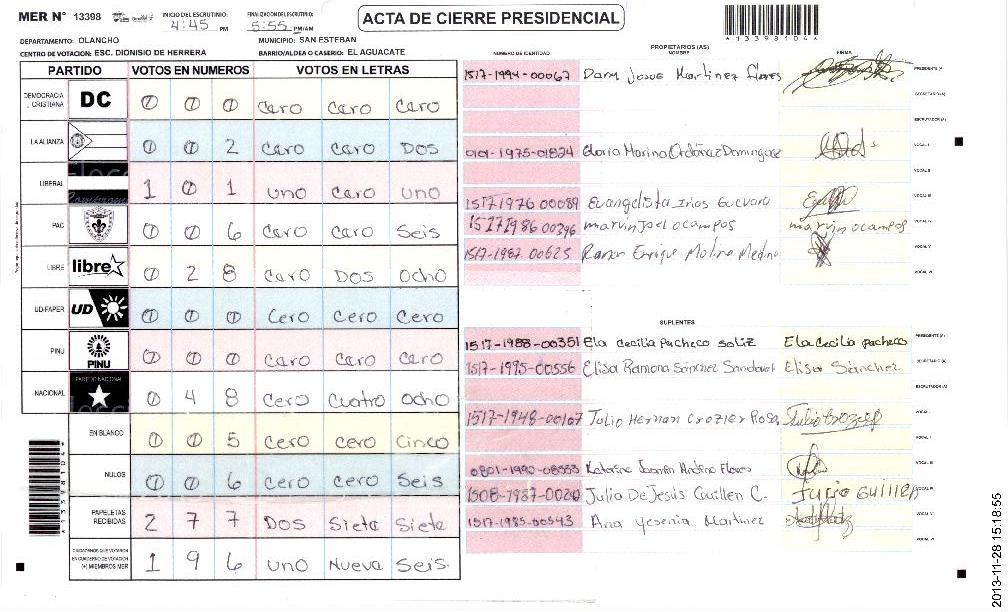 MER N° 13398
INICIO DEL ESCRUTINIO: 4:45 PM
FINALIZACION DEL ESCRUTINIO: 5:55 PM/AM
ACTA DE CIERRE PRESIDENCIAL
A13398104A
DEPARTAMENTO: OLANCHO
MUNICIPIO: SAN ESTEBAN
CENTRO DE VOTACION: ESC. DIONISIO DE HERRERA
BARRIO/ALDEA O CASERIO: EL AGUACATE
PARTIDO VOTOS EN NUMEROS VOTOS EN LETRAS
DEMOCRACIA CRISTIANA DC 0 0 0 Caro Caro Caro
LA ALIANZA 0 0 2 Caro Caro Dos
LIBERAL 1 0 1 Uno Caro Uno
PAC 0 0 6 Caro Caro Seis
LIBRE libre 0 2 8 Caro Dos Ocho
UD-FAPER UD 0 0 0 Cero Cero Cero
PINU PINU 0 0 0 Caro Caro Caro
NACIONAL PARTIDO NACIONAL 0 4 8 Cero Cuatro Ocho
EN BLANCO 0 0 5 Cero Cero Cinco
NULOS 0 0 6 Cero Cero Seis
PAPELETAS RECIBIDAS 2 7 7 Dos Sieta Sieta
CIUDADANOS QUE VOTARON EN CUADERNO DE VOTACION (+) MIEMBROS MER 1 9 6 Uno Nueva Seis
A13398104A
PROPIETARIOS (AS)
NUMERO DE IDENTIDAD NOMBRE FIRMA
1517-1994-00067 Josue Martinez Flores PRESIDENTE (A)
SECRETARIO (A)
ESCRUTADOR (A)
0101-1975-01824 Gloria Marina Ordoñez Dominguez VOCAL I
VOCAL II
1517 1976 00089 Evangelista Irias Guevara VOCAL III
1517 1986 00396 marvin Joel ocampos marvin ocampos VOCAL IV
1517-1987-00625 Ramon Enrique Molina Medina VOCAL V
VOCAL VI
SUPLENTES
1517-1988-00351 Ela cecilia Pacheco soliz Ela cecilia pacheco PRESIDENTE (A)
1517-1995-00556 Elisa Ramona Sánchez Sandoval Elisa Sánchez SECRETARIO (A)
ESCRUTADOR (A)
1517-1948-00107 Julio Hernan Crozier Rosa Julio Crozier VOCAL I
VOCAL II
0801-1990-08553 Katerine Andino Flores VOCAL III
1508-1987-0020 Julia De Jesús Guillen C. Julia Guillen VOCAL IV
1517-1985-00543 Ana Yesenia Martinez VOCAL V
VOCAL VI
2013-11-28 15:18:55